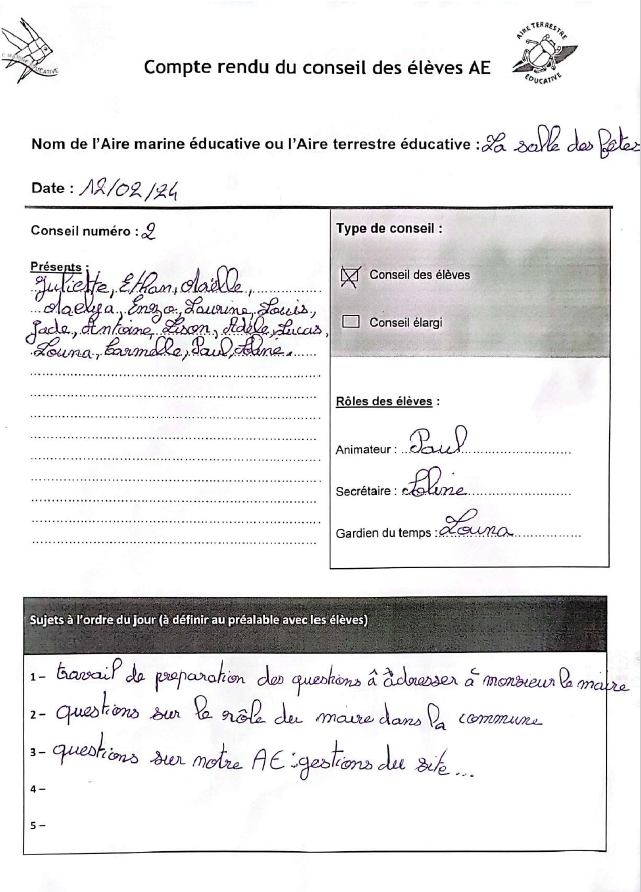 AIRE TERRESTRE
ÉDUCATIVE
Compte rendu du conseil des élèves AE
Nom de l'Aire marine éducative ou l'Aire terrestre éducative : La salle des fêtes
Date : 12/02/24
Conseil numéro : 2
Présents :
Juliette, Ethan, Maëlle,
Maelya, Enzo, Laurine, Louis,
Jade, Antoine, Lison, Adèle, Lucas,
Louna, Carmelle, Paul, Aline.
Type de conseil :
Conseil des élèves
Conseil élargi
Rôles des élèves :
Animateur : Paul
Secrétaire : Aline
Gardien du temps : Louna
Sujets à l'ordre du jour (à définir au préalable avec les élèves)
1 – travail de preparation des questions â àdresser à monsieur le maire
2 – questions sur le rôle du maire dans la commune
3 – questions sur notre AE : gestions du site...
4 –
5 –